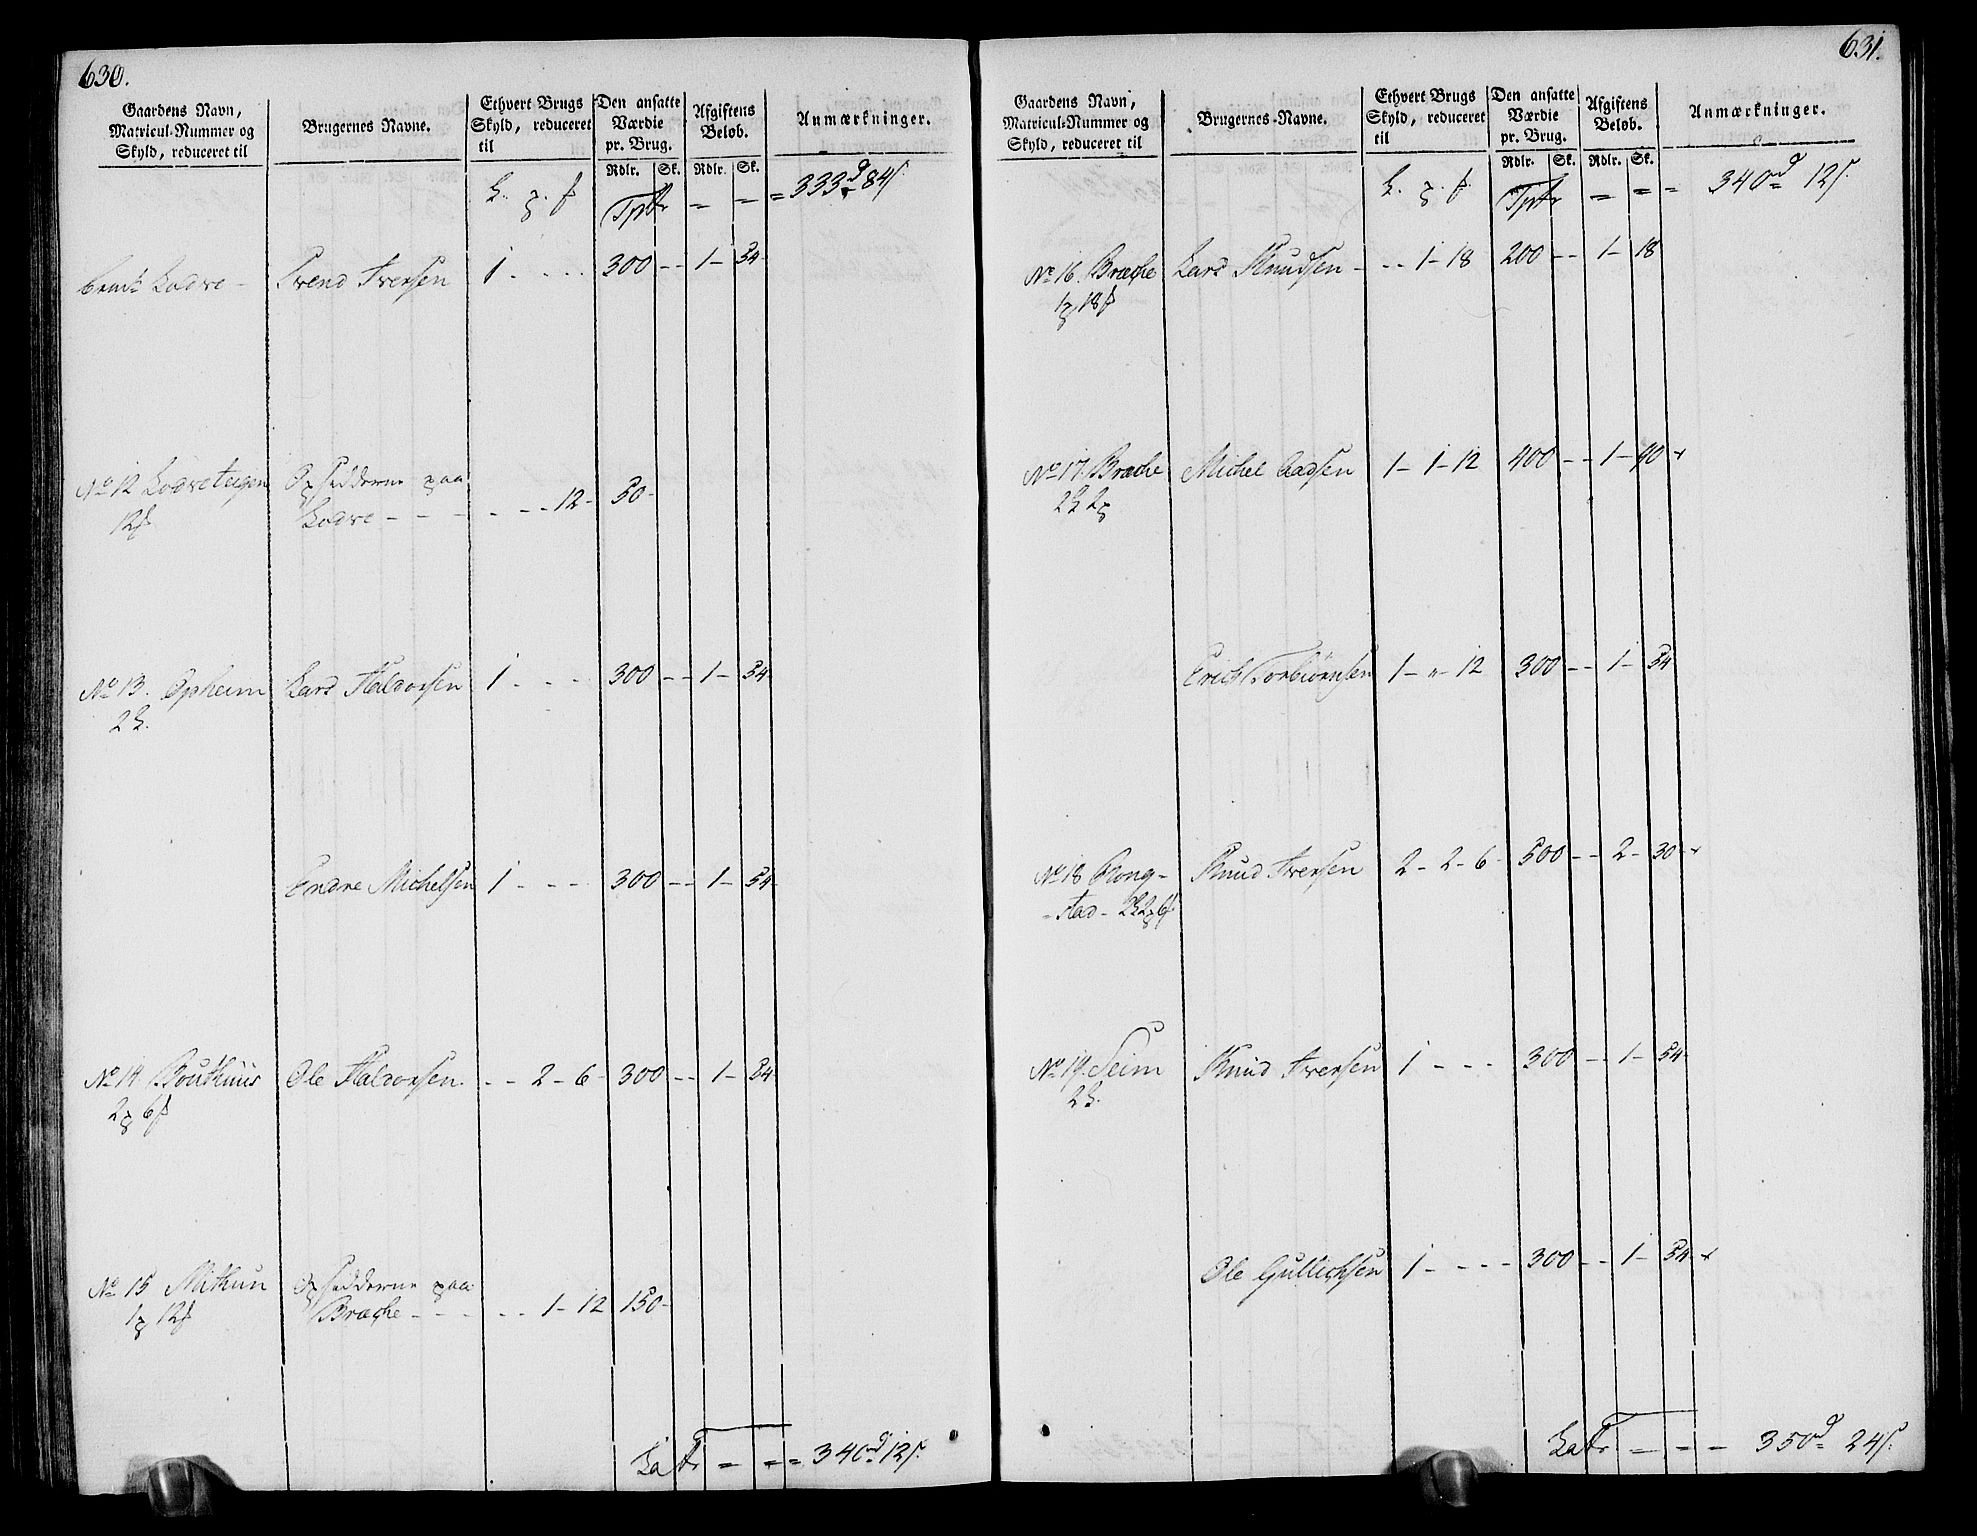 630.
Gaardens Navn,
Matricul-Nummer og
Skyld, reduceret til
Brugernes Navne.
Ethvert Brugs
Skyld, reduceret
til
Den ansatte
Værdie
pr. Brug.
Rdlr. Sk.
Afgiftens
Beløb.
Rdlr. Sk.
Anmærkninger.
Tptr = = = 333 84
Lodve - Svend Iversen 1 - - - 300 - - 1 - 54
No 12 Lodveteigen Opsidderne paa
12 Lodve - - - - - - 12 - 50 -
No 13. Opheim Lars Haldorsen 1 - - - 300 - - 1 - 54
2
Endre Michelsen 1 - - - 300 - - 1 - 54
No 14 Bouthuus Ole Haldorsen - - 2 - 6 - 300 - - 1 - 54
2 6
No 15 Mithun Opsidderne paa
1 12 Bræche - - - - - 1 - 12 150 -
Latr = = = 340 12
631.
Gaardens Navn,
Matricul-Nummer og
Skyld, reduceret til
Brugernes Navne.
Ethvert Brugs
Skyld, reduceret
til
Den ansatte
Værdie
pr. Brug.
Rdlr. Sk.
Afgiftens
Beløb.
Rdlr. Sk.
Anmærkninger.
Tptr = = = 340 12
No 16. Bræche Lars Knudsen - - - 1 - 18 200 - - 1 - 18
1 18
No 17. Bræche Michel Aadsen 1 - 1 - 12 400 - - 1 - 90
2 2
Erich Torbiørnsen 1 - " - 12 300 - - 1 - 54
No 18 Rong- Knud Iversen 2 - 2 - 6 - 500 - - 2 - 30
- stad - 2 2 6
No 19. Seim Knud Iversen 1 - - - 300 - - 1 - 54
2
Ole Gullichsen 1 - - - - 300 - - 1 - 54
Latr = = = 350 24